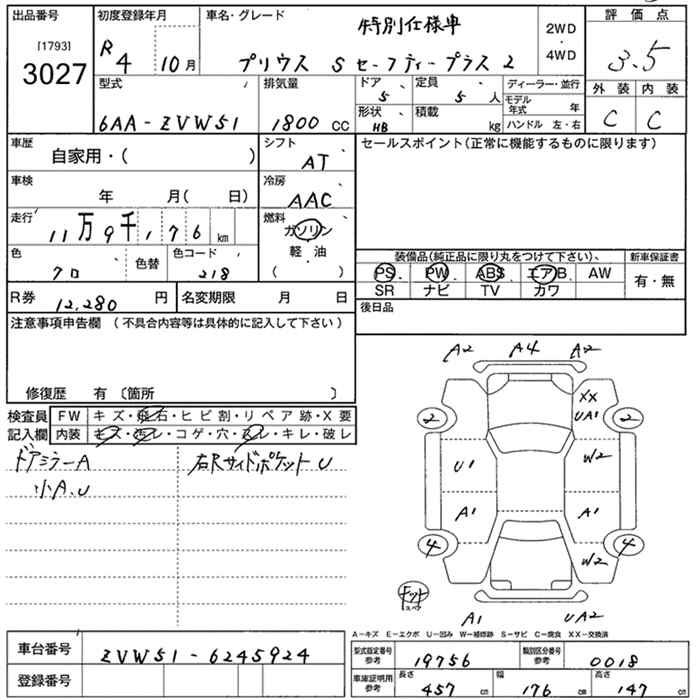 出品番号
[1793]
3027
初度登録年月
R 4 10月
車名・グレード
特別仕様車
プリウス S セーフティープラス 2
2WD
・
4WD
評価点
3.5
外装 内装
C C
型式
6AA-ZVW51
排気量
1800 CC
ドア 5
定員 5 人
ディーラー・並行
形状 HB
積載 kg
モデル年式 年
ハンドル 左・右
車歴
自家用・( )
シフト
AT
車検
年 月( 日)
冷房
AAC
走行
11万9千176 km
燃料
ガソリン
軽・油
( )
色
クロ
色替
色コード
218
セールスポイント(正常に機能するものに限ります)
装備品(純正品に限り丸をつけて下さい)、
新車保証書
PS PW ABS エアB AW
SR ナビ TV カワ
有・無
R券 12,280 円
名変期限 月 日
後日品
注意事項申告欄 (不具合内容等は具体的に記入して下さい)
修復歴 有 〔箇所 〕
検査員記入欄
FW キズ・飛石・ヒビ割・リペア跡・X要
内装 キズ・汚レ・コゲ・穴・スレ・キレ・破レ
ドアミラーA
小A、U
右Rサイドポケット U
A2 A4 A2
XX
UA1
2 2
U1 W2
A1 A1
4 4
W2
A1 UA2
A-キズ E-エクボ U-凹み W-補修跡 S-サビ C-腐食 XX-交換済
車台番号
ZVW51-6245924
登録番号
型式指定番号 参考
19756
類別区分番号 参考
0018
車庫証明用 参考
長さ 457 cm
幅 176 cm
高さ 147 cm